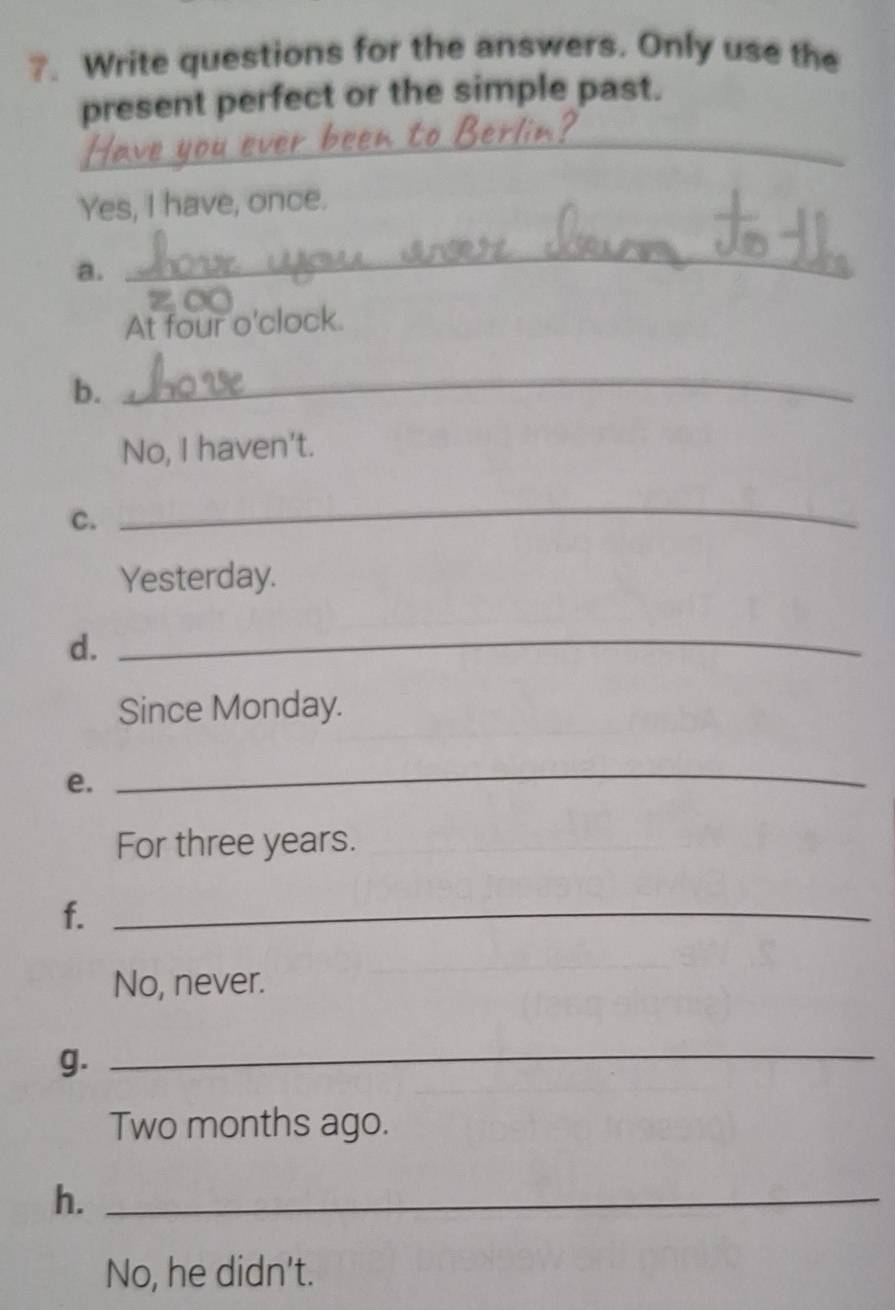 7. Write questions for the answers. Only use the
present perfect or the simple past.
Have you ever been to Berlin?
Yes, I have, once.
a. have you ever been to the
zoo
At four o'clock.
b. have
No, I haven't.
c.
Yesterday.
d.
Since Monday.
e.
For three years.
f.
No, never.
g.
Two months ago.
h.
No, he didn't.